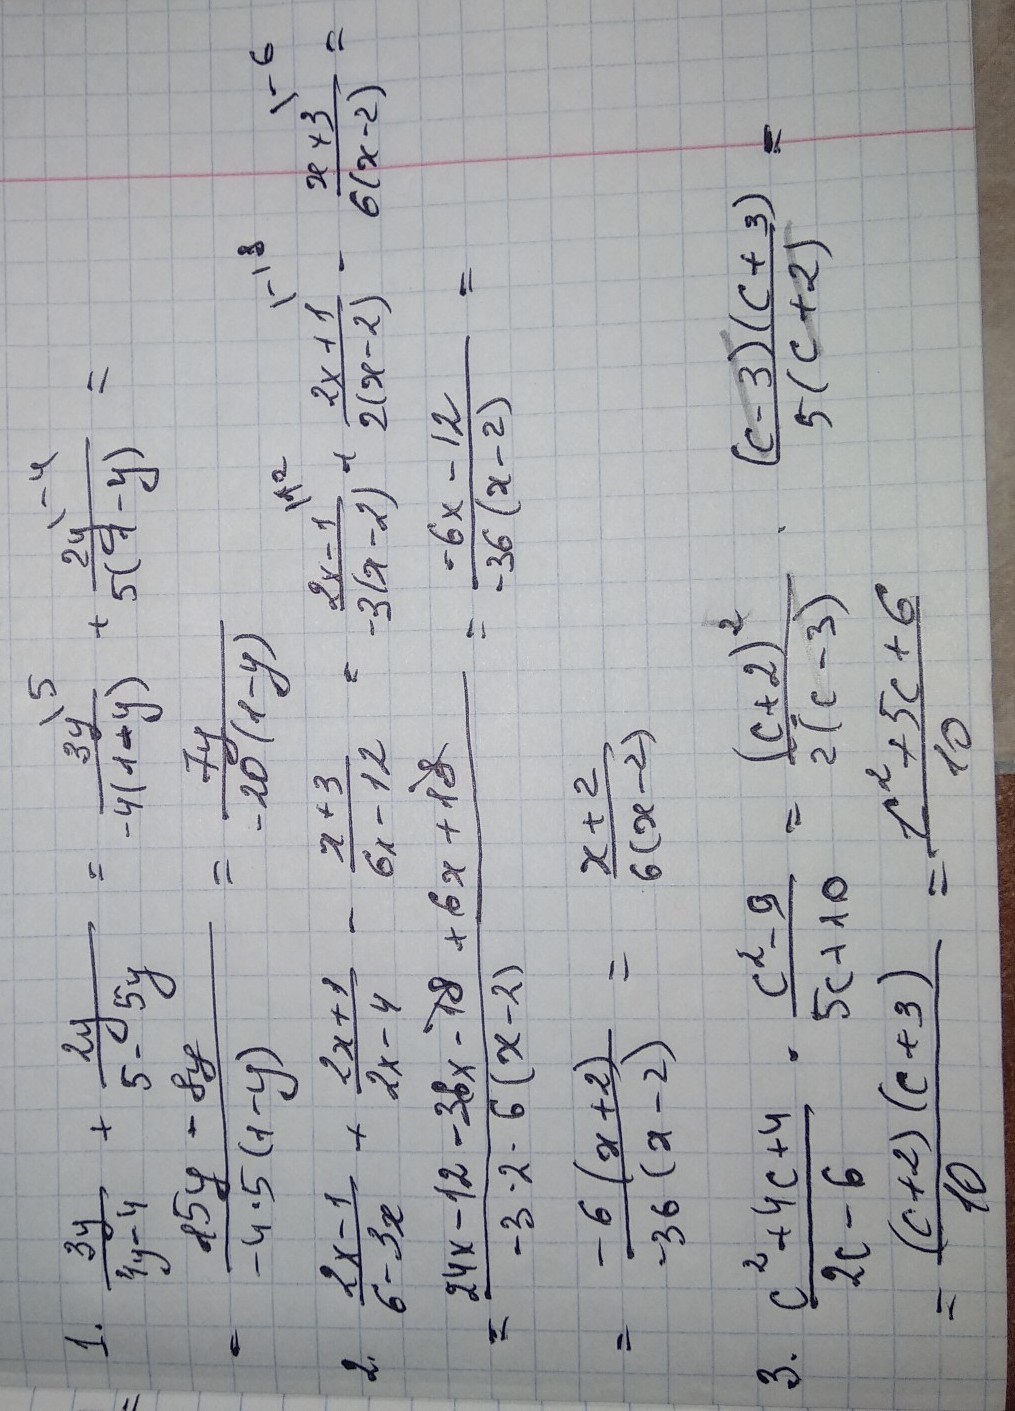 1. 3y/(4y-4) + 2y/(5-5y) = 3y\5/(-4(1-y)) + 2y\-4/(5(1-y)) =
= (15y - 8y)/(-4·5(1-y)) = 7y/(-20(1-y))
2. (2x-1)/(6-3x) + (2x+1)/(2x-4) - (x+3)/(6x-12) = (2x-1)\12/(-3(x-2)) + (2x+1)\-18/(2(x-2)) - (x+3)\-6/(6(x-2)) =
= (24x-12-36x-18+6x+18)/(-3·2·6(x-2)) = (-6x-12)/(-36(x-2)) =
= -6(x+2)/(-36(x-2)) = (x+2)/(6(x-2))
3. (c²+4c+4)/(2c-6) · (c²-9)/(5c+10) = (c+2)²/(2(c-3)) · (c-3)(c+3)/(5(c+2)) =
= (c+2)(c+3)/10 = (c²+5c+6)/10